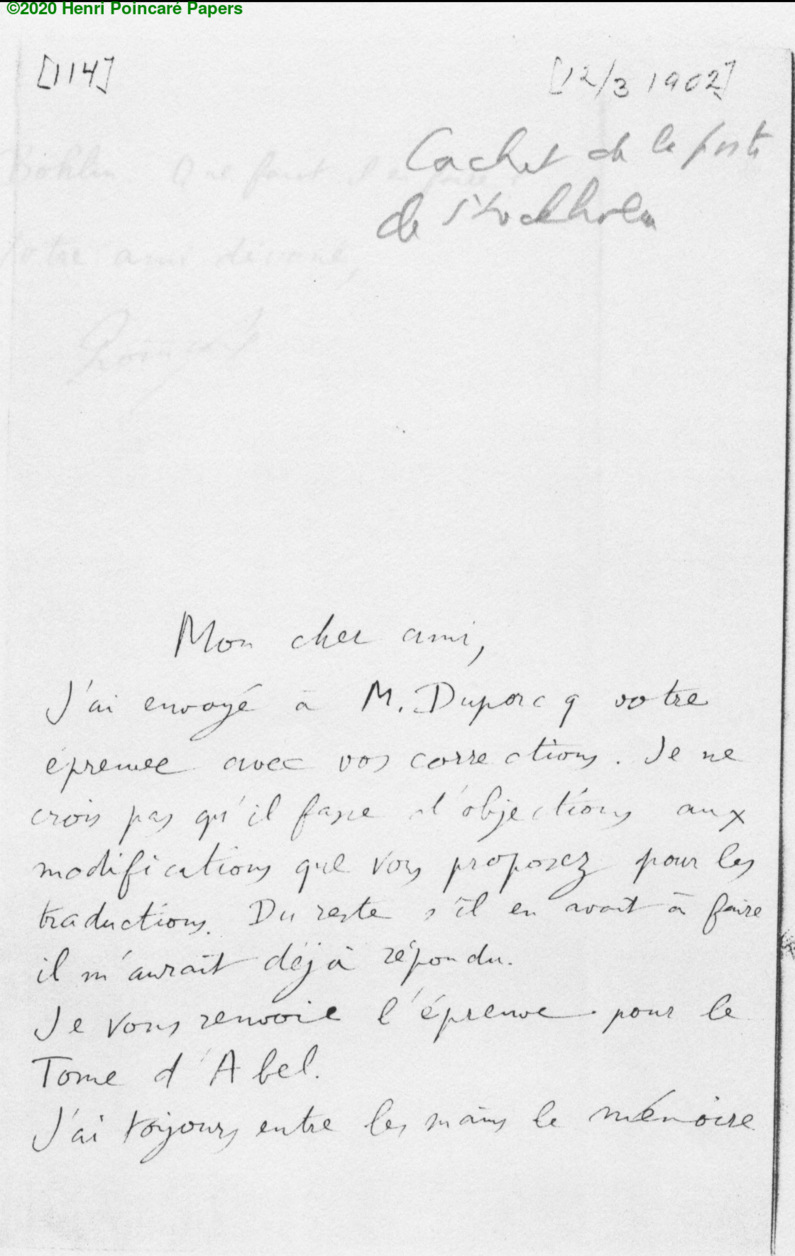 ©2020 Henri Poincaré Papers
[114]
[12/3 1902]
Cachet de la poste
de Stockholm
Bohlin. Que faut il en faire ?
Votre ami dévoué,
Poincaré
Mon cher ami,
J'ai envoyé à M. Duporcq votre
épreuve avec vos corrections. Je ne
crois pas qu'il fasse d'objections aux
modifications que vous proposez pour les
traductions. Du reste s'il en avait à faire
il m'aurait déjà répondu.
Je vous renvoie l'épreuve pour le
Tome d'Abel.
J'ai toujours entre les mains le mémoire